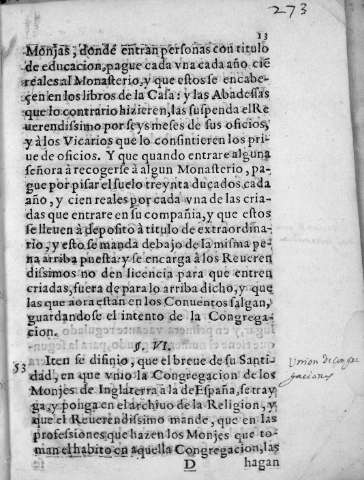 273
13
Monjas, donde entran personas con titulo
de educacion, pague cada vna cada año cie
reales al Monasterio, y que estos se encabe-
çen en los libros de la Casa: y las Abadessas
que lo contrario hizieren, las suspenda el Re
uerendissimo por seys meses de sus oficios,
y à los Vicarios que lo consintieren los pri-
ue de oficios. Y que quando entrare alguna
señora à recogerse à algun Monasterio, pa-
gue por pisar el suelo treynta ducados cada
año, y cien reales por cada vna de las cria-
das que entrare en su compañia, y que estos
se lleuen à deposito à titulo de extraordina-
rio, y esto se manda debajo de la misma pe-
na arriba puesta: y se encarga à los Reueren
dissimos no den licencia para que entren
criadas, fuera de para lo arriba dicho, y que
las que aora estan en los Conuentos salgan,
guardandose el intento de la Congrega-
cion.
§. VI.
53 Iten se difinio, que el breue de su Santi-
dad, en que vnio la Congregacion de los
Monjes de Inglaterra à la de España, se tray
ga, y ponga en el archiuo de la Religion, y
que el Reuerendissimo mande, que en las
professiones que hazen los Monjes que to-
man el habito en aquella Congregacion, las
D hagan
Vnion de congre
gaciones